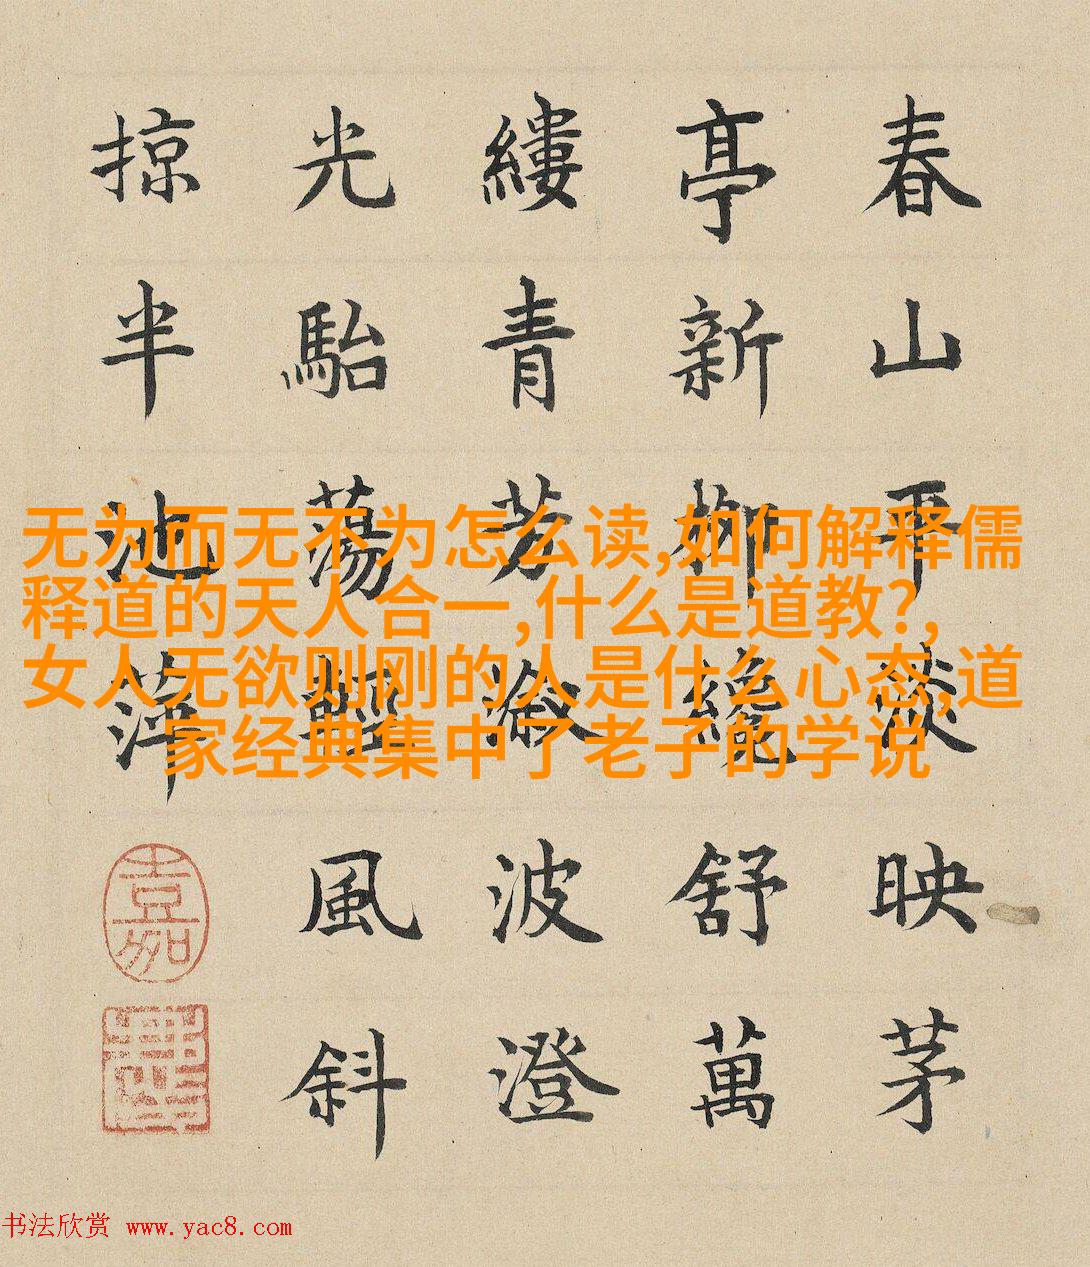 春山平淡映茅
亭新柳纔舒萬
縷青芳波澄
光駘蕩輕風斜
掠半池萍
嘉
无为而无不为怎么读,如何解释儒
释道的天人合一,什么是道教?,
女人无欲则刚的人是什么心态,道
家经典集中了老子的学说
书法欣赏 www.yac8.com